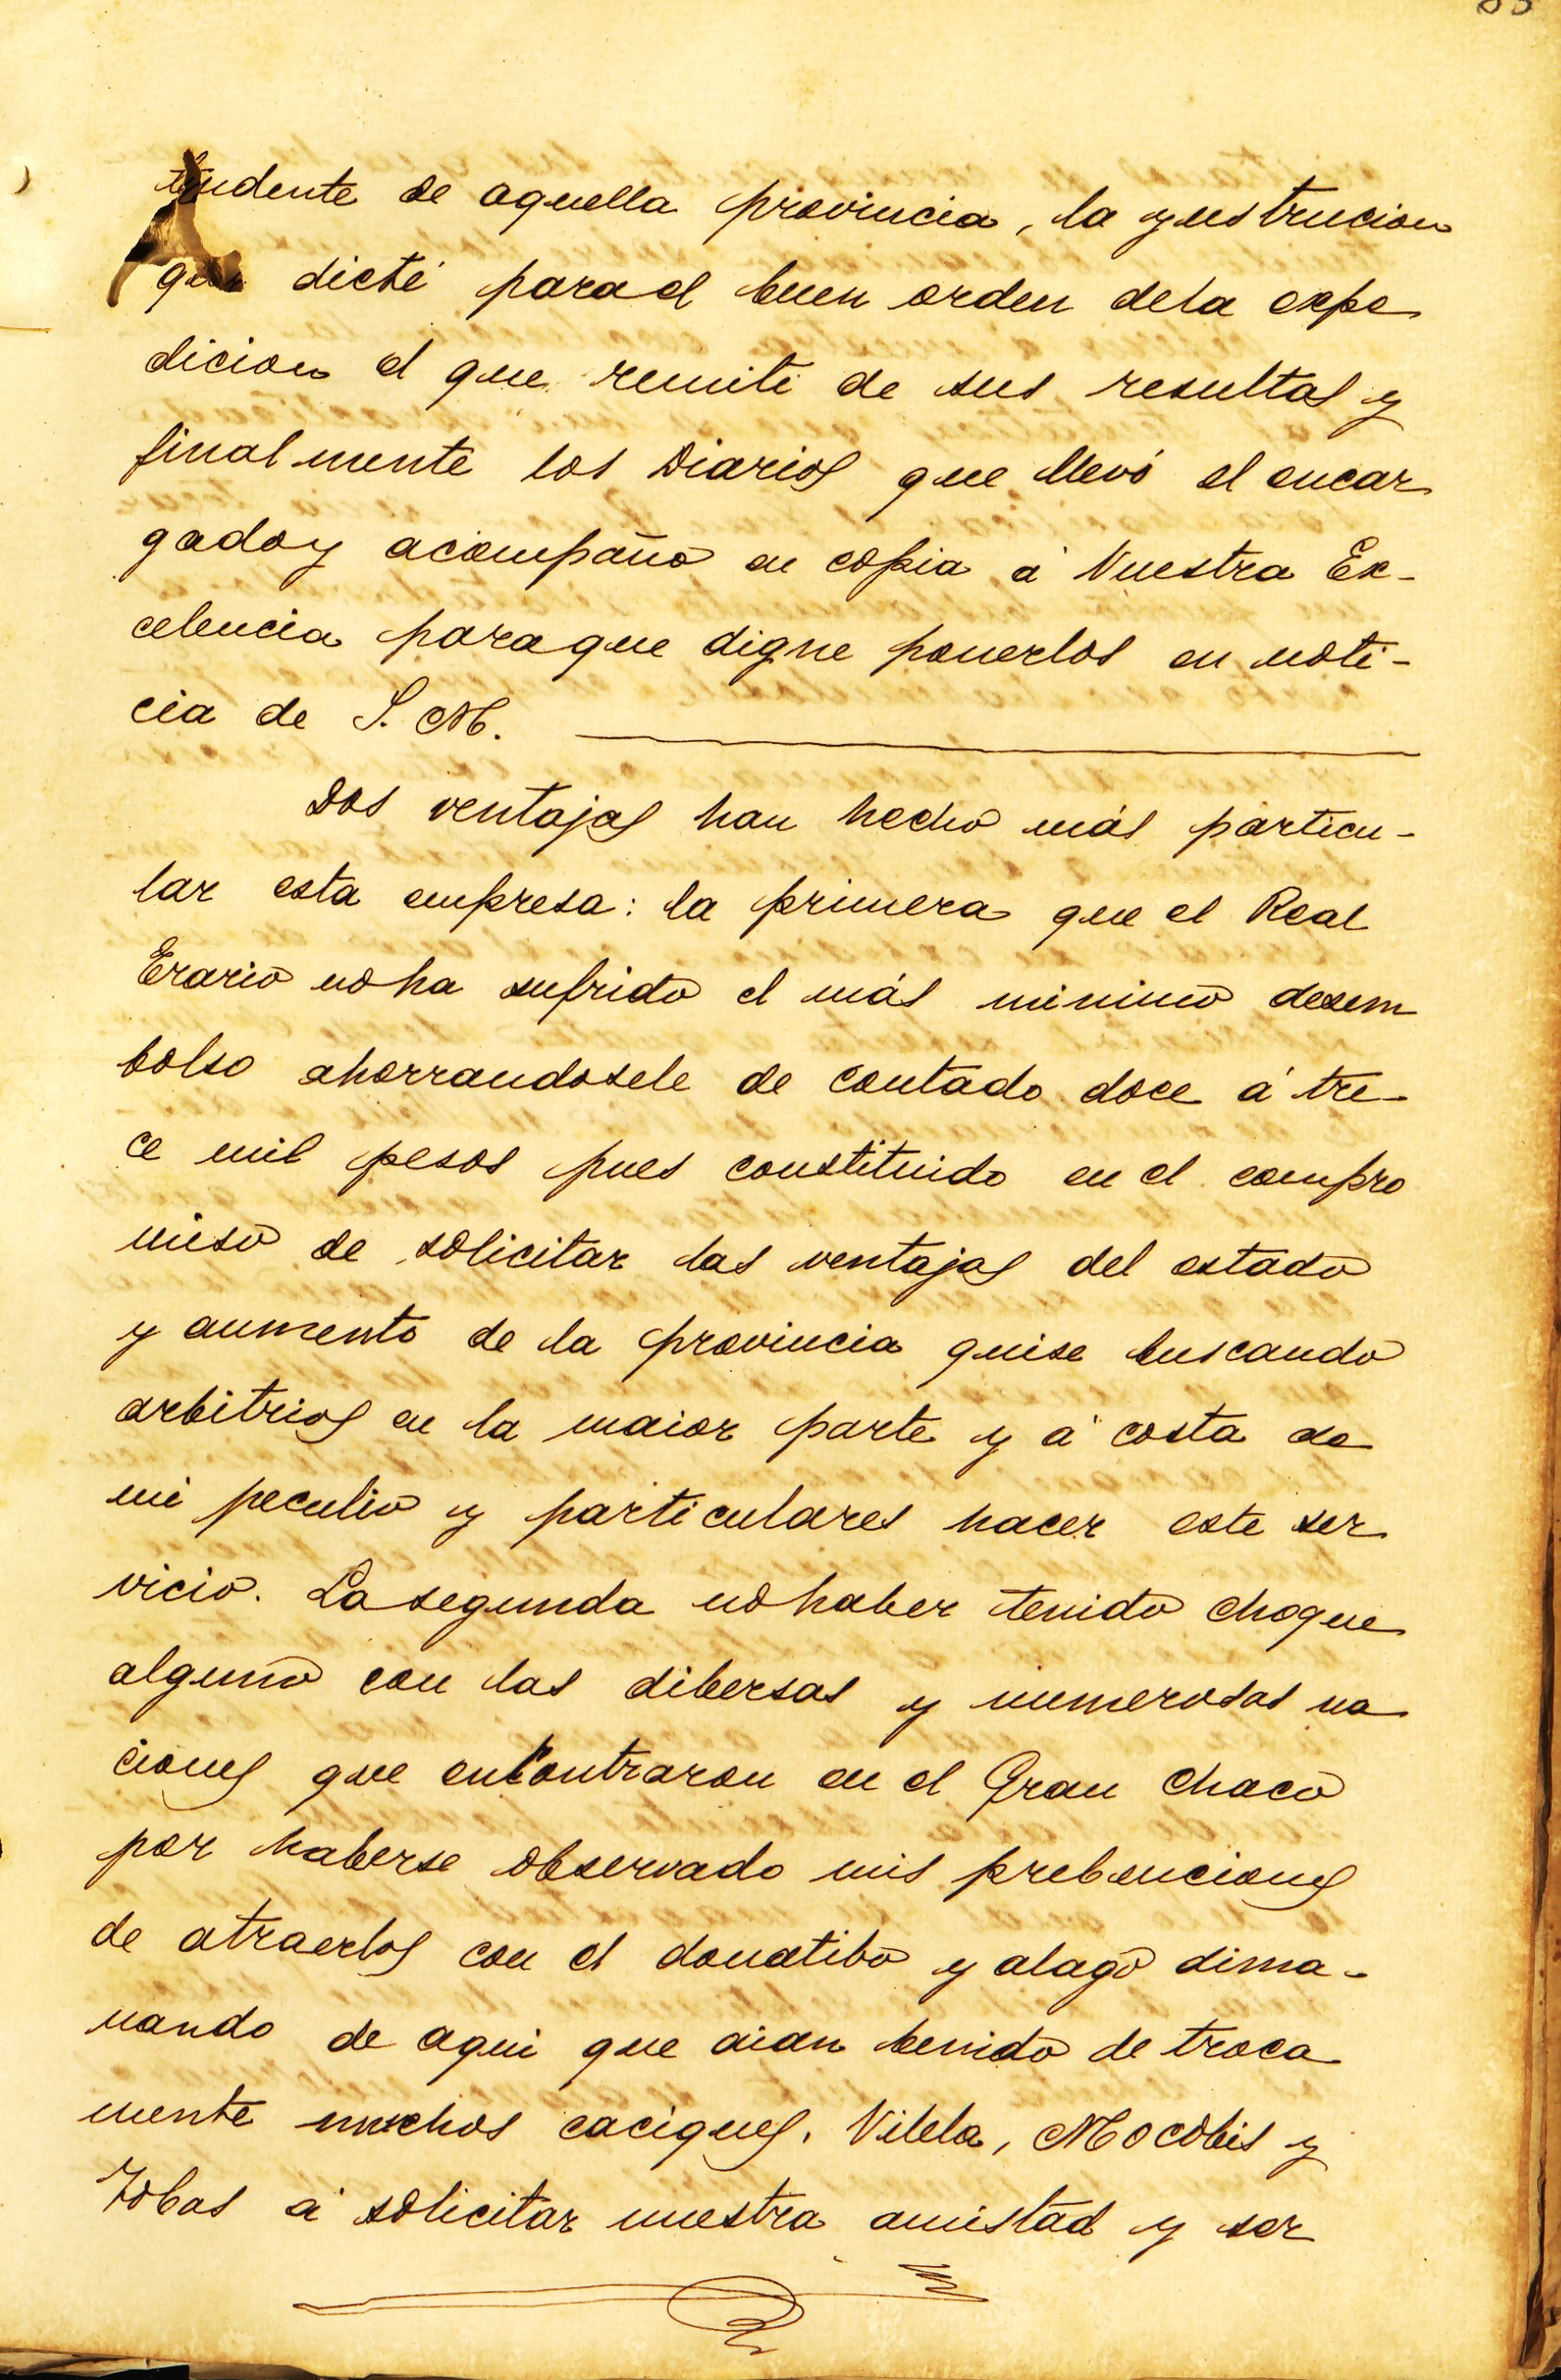 tendente de aquella provincia, la ynstrucion
que dicté parael buen orden dela expe
dicion el que remiti de sus resultas y
finalmente los Diarios que llevó el encar
gadoy acompaño en copia á Vuestra Ex-
celencia paraque digne ponerlos en noti-
cia de S. M.
Dos ventajas han hecho más particu-
lar esta empresa: la primera que el Real
Erario noha sufrido el más minimo desem
bolso ahorrandosele de contado doce á tre-
ce mil pesos pues constituido en el compro
miso de solicitar las ventajas del estado
y aumento de la provincia quise buscando
arbitrios en la maior parte y á costa de
mi peculio y particulares hacer este ser
vicio. Lasegunda nohaber tenido choque
alguno con las dibersas y numerosas na
ciones que encontraron en el Gran Chaco
por haberse observado mis prebenciones
de atraerlos con el donatibo y alago dima-
nando de aqui que aian benido de troca
mente muchos caciques. Vilela, Mocobis y
Tobas á solicitar nuestra amistad y ser